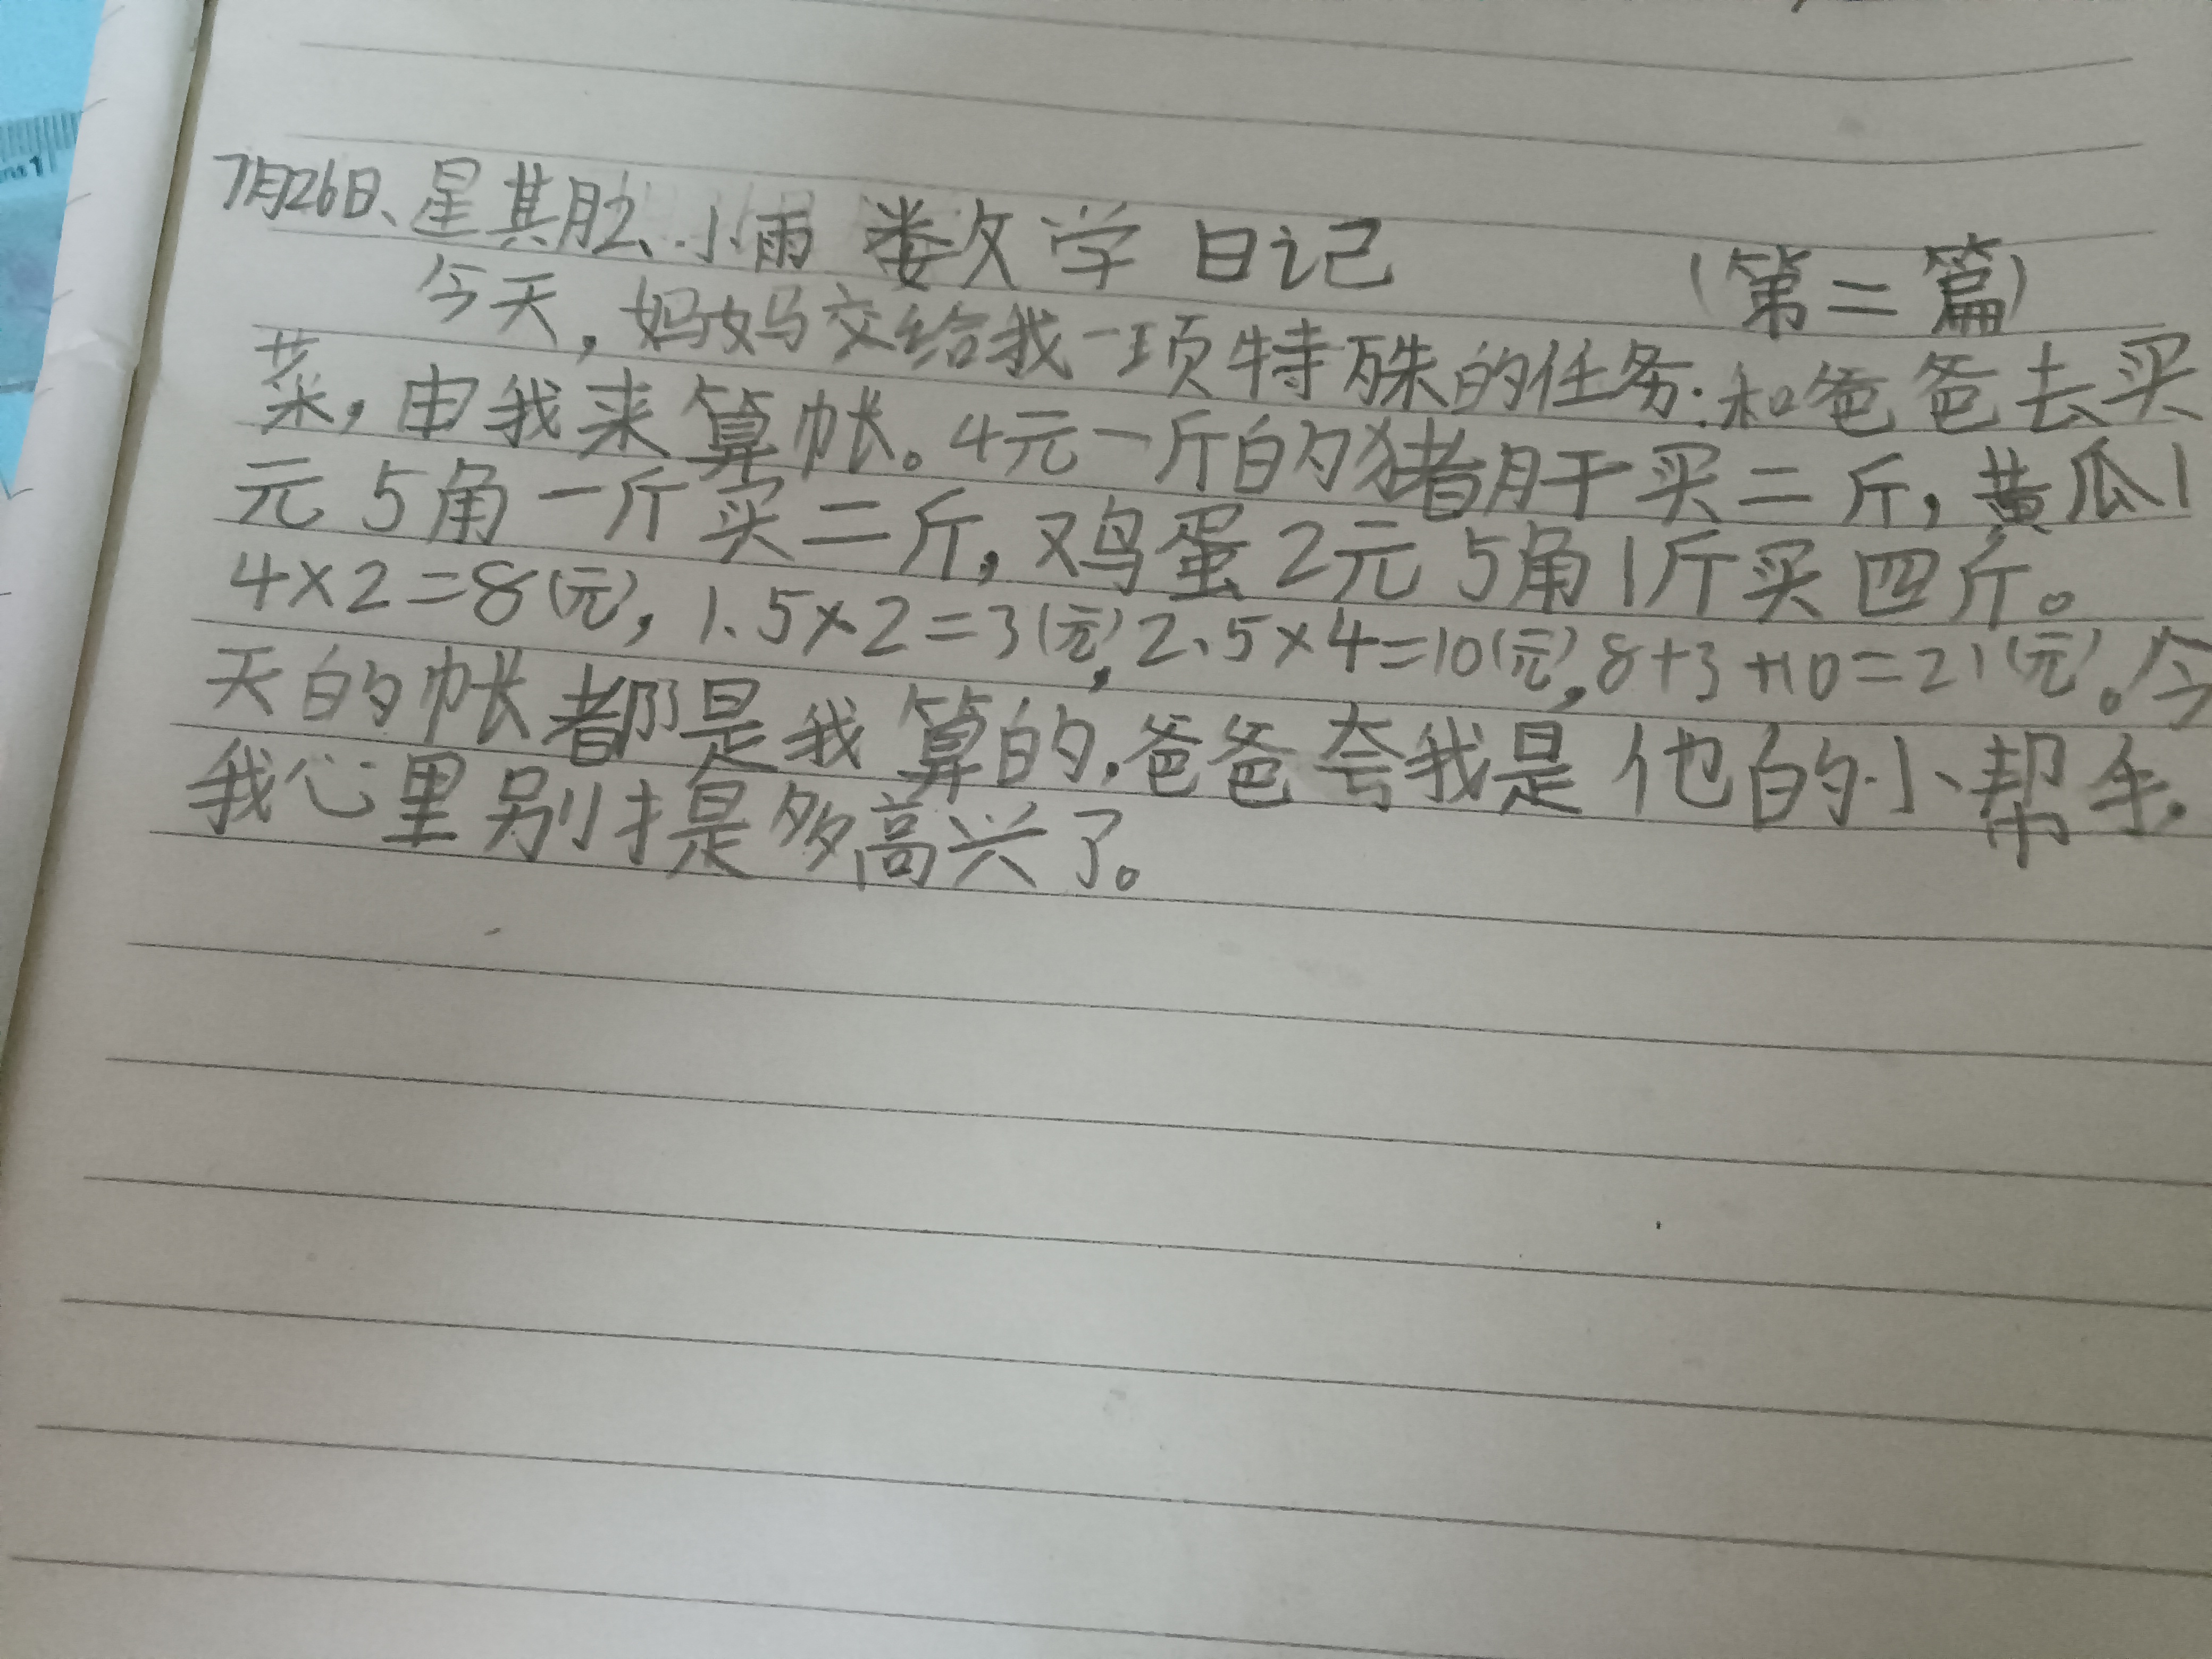 7月26日、星其月2、小雨 数学日记 (第二篇)
今天，妈妈交给我一项特殊的任务：和爸爸去买
菜，由我来算帐。4元一斤的猪肝买二斤，黄瓜1
元5角一斤买二斤，鸡蛋2元5角1斤买四斤。
4×2=8(元)，1.5×2=3(元)，2.5×4=10(元)，8+3+10=21(元)。今
天的帐都是我算的.爸爸夸我是他的小帮手.
我心里别提多高兴了。